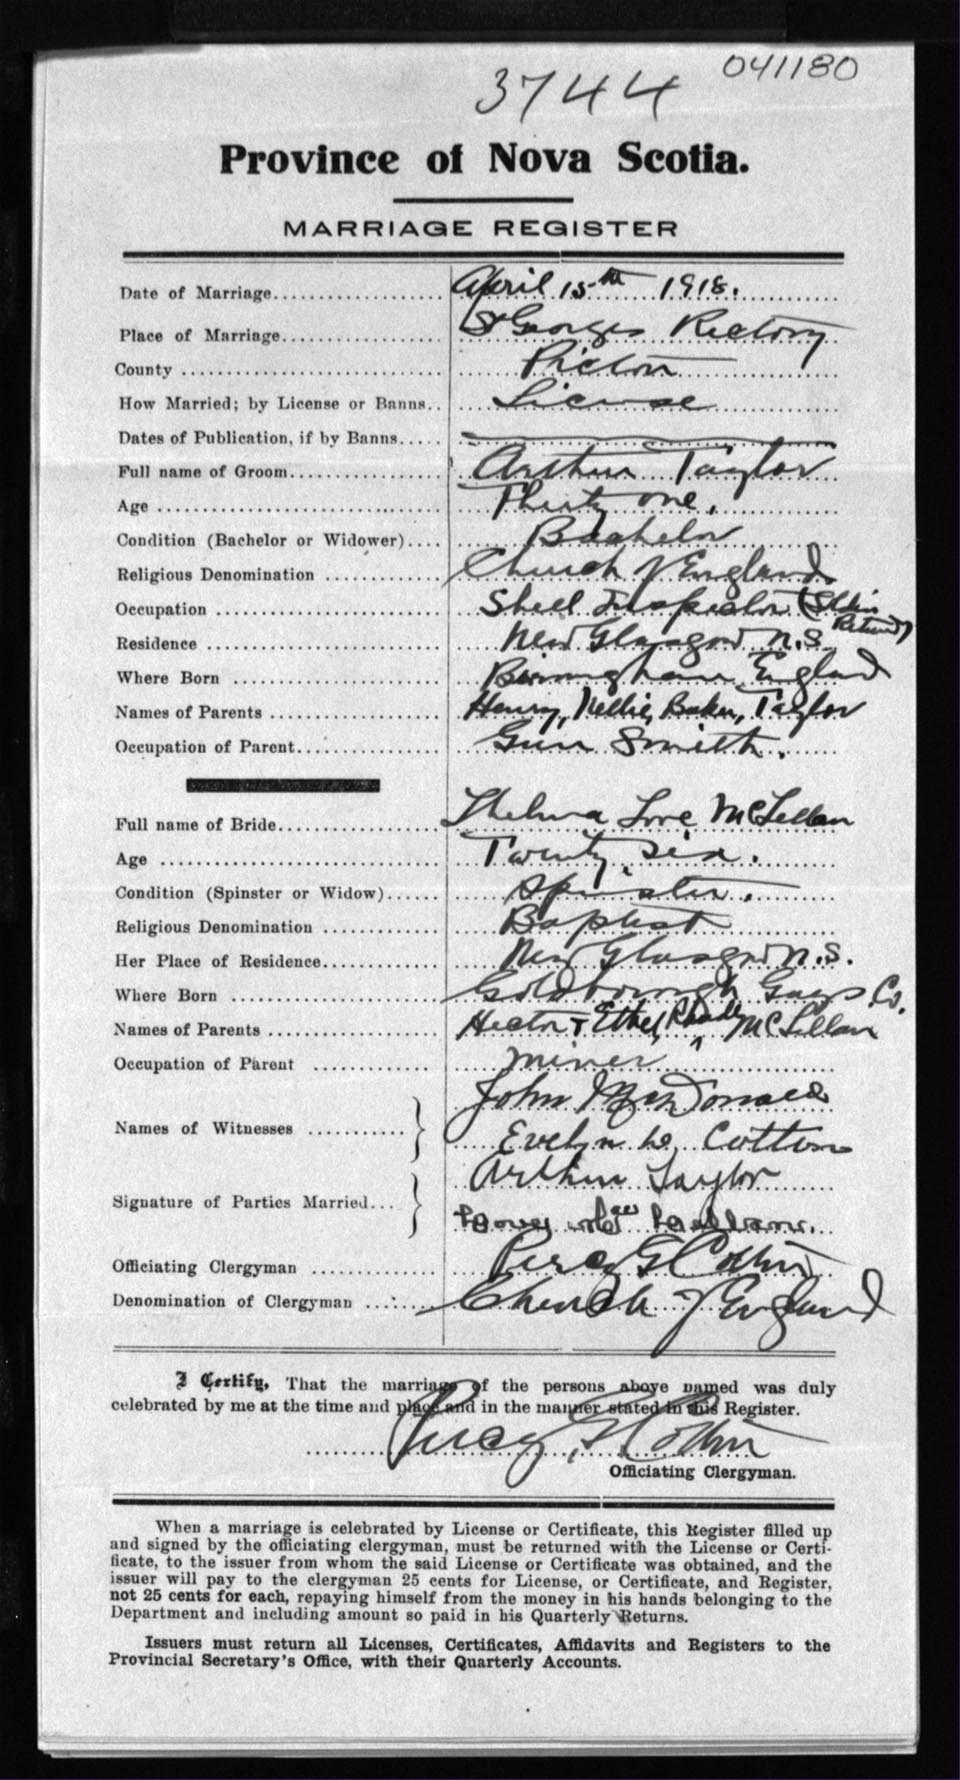 041180
3744
Province of Nova Scotia.
MARRIAGE REGISTER
Date of Marriage April 15th 1918.
Place of Marriage St Georges Rectory
County Pictou
How Married; by License or Banns License
Dates of Publication, if by Banns
Full name of Groom Arthur Taylor
Age Thirty one.
Condition (Bachelor or Widower) Bachelor
Religious Denomination Church of England
Occupation Shell Inspector
Residence New Glasgow N.S.
Where Born Birmingham England
Names of Parents Henry, Nellie, Baker, Taylor
Occupation of Parent Gun Smith.
Full name of Bride Thelma Love McLellan
Age Twenty Six.
Condition (Spinster or Widow) Spinster.
Religious Denomination Baptist
Her Place of Residence New Glasgow N.S.
Where Born Goldborough Guys. Co.
Names of Parents Hector + Ethel, McLellan
Occupation of Parent Miner
Names of Witnesses John MacDonald
Evelyn Cotton
Signature of Parties Married Arthur Taylor
Officiating Clergyman Percy G Cotton
Denomination of Clergyman Church of England
I Certify, That the marriage of the persons above named was duly
celebrated by me at the time and place and in the manner stated in this Register.
Percy G Cotton
Officiating Clergyman.
When a marriage is celebrated by License or Certificate, this Register filled up
and signed by the officiating clergyman, must be returned with the License or Certi-
ficate, to the issuer from whom the said License or Certificate was obtained, and the
issuer will pay to the clergyman 25 cents for License, or Certificate, and Register,
not 25 cents for each, repaying himself from the money in his hands belonging to the
Department and including amount so paid in his Quarterly Returns.
Issuers must return all Licenses, Certificates, Affidavits and Registers to the
Provincial Secretary's Office, with their Quarterly Accounts.